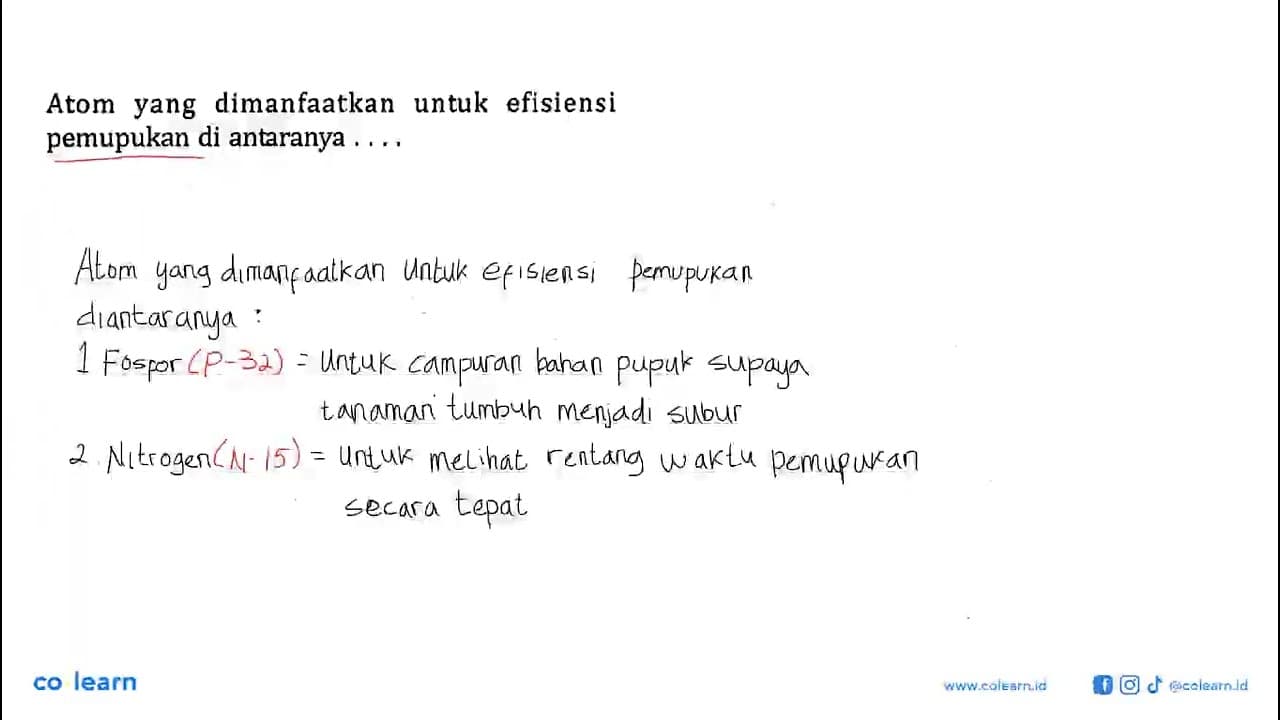 Atom yang dimanfaatkan untuk efisiensi
pemupukan di antaranya . . . .
Atom yang dimanfaatkan untuk efisiensi pemupukan
diantaranya :
1 Fospor (P-32) = Untuk campuran bahan pupuk supaya
tanaman tumbuh menjadi subur
2. Nitrogen (N-15) = Untuk melihat rentang waktu pemupukan
secara tepat
co learn
www.colearn.id @colearn.id